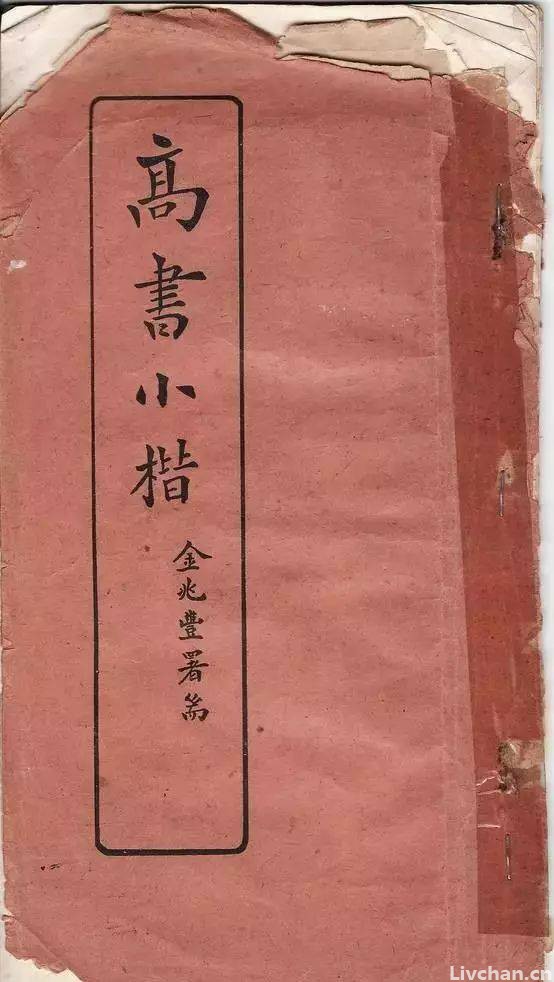 高書小楷
金兆豐署耑
Livchan.cn